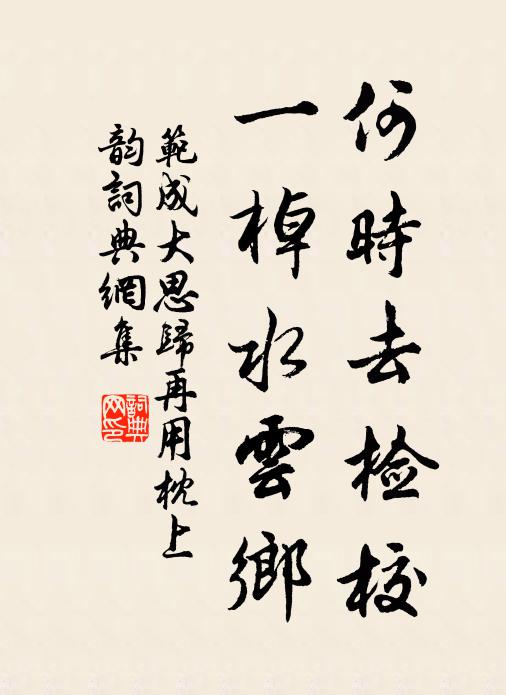 何時去检校
一棹水雲鄉
範成大思歸再用枕上
韵詞典網集
詞典
网印